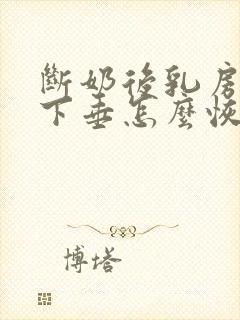 斷奶後乳房
下垂怎麼恢
博塔